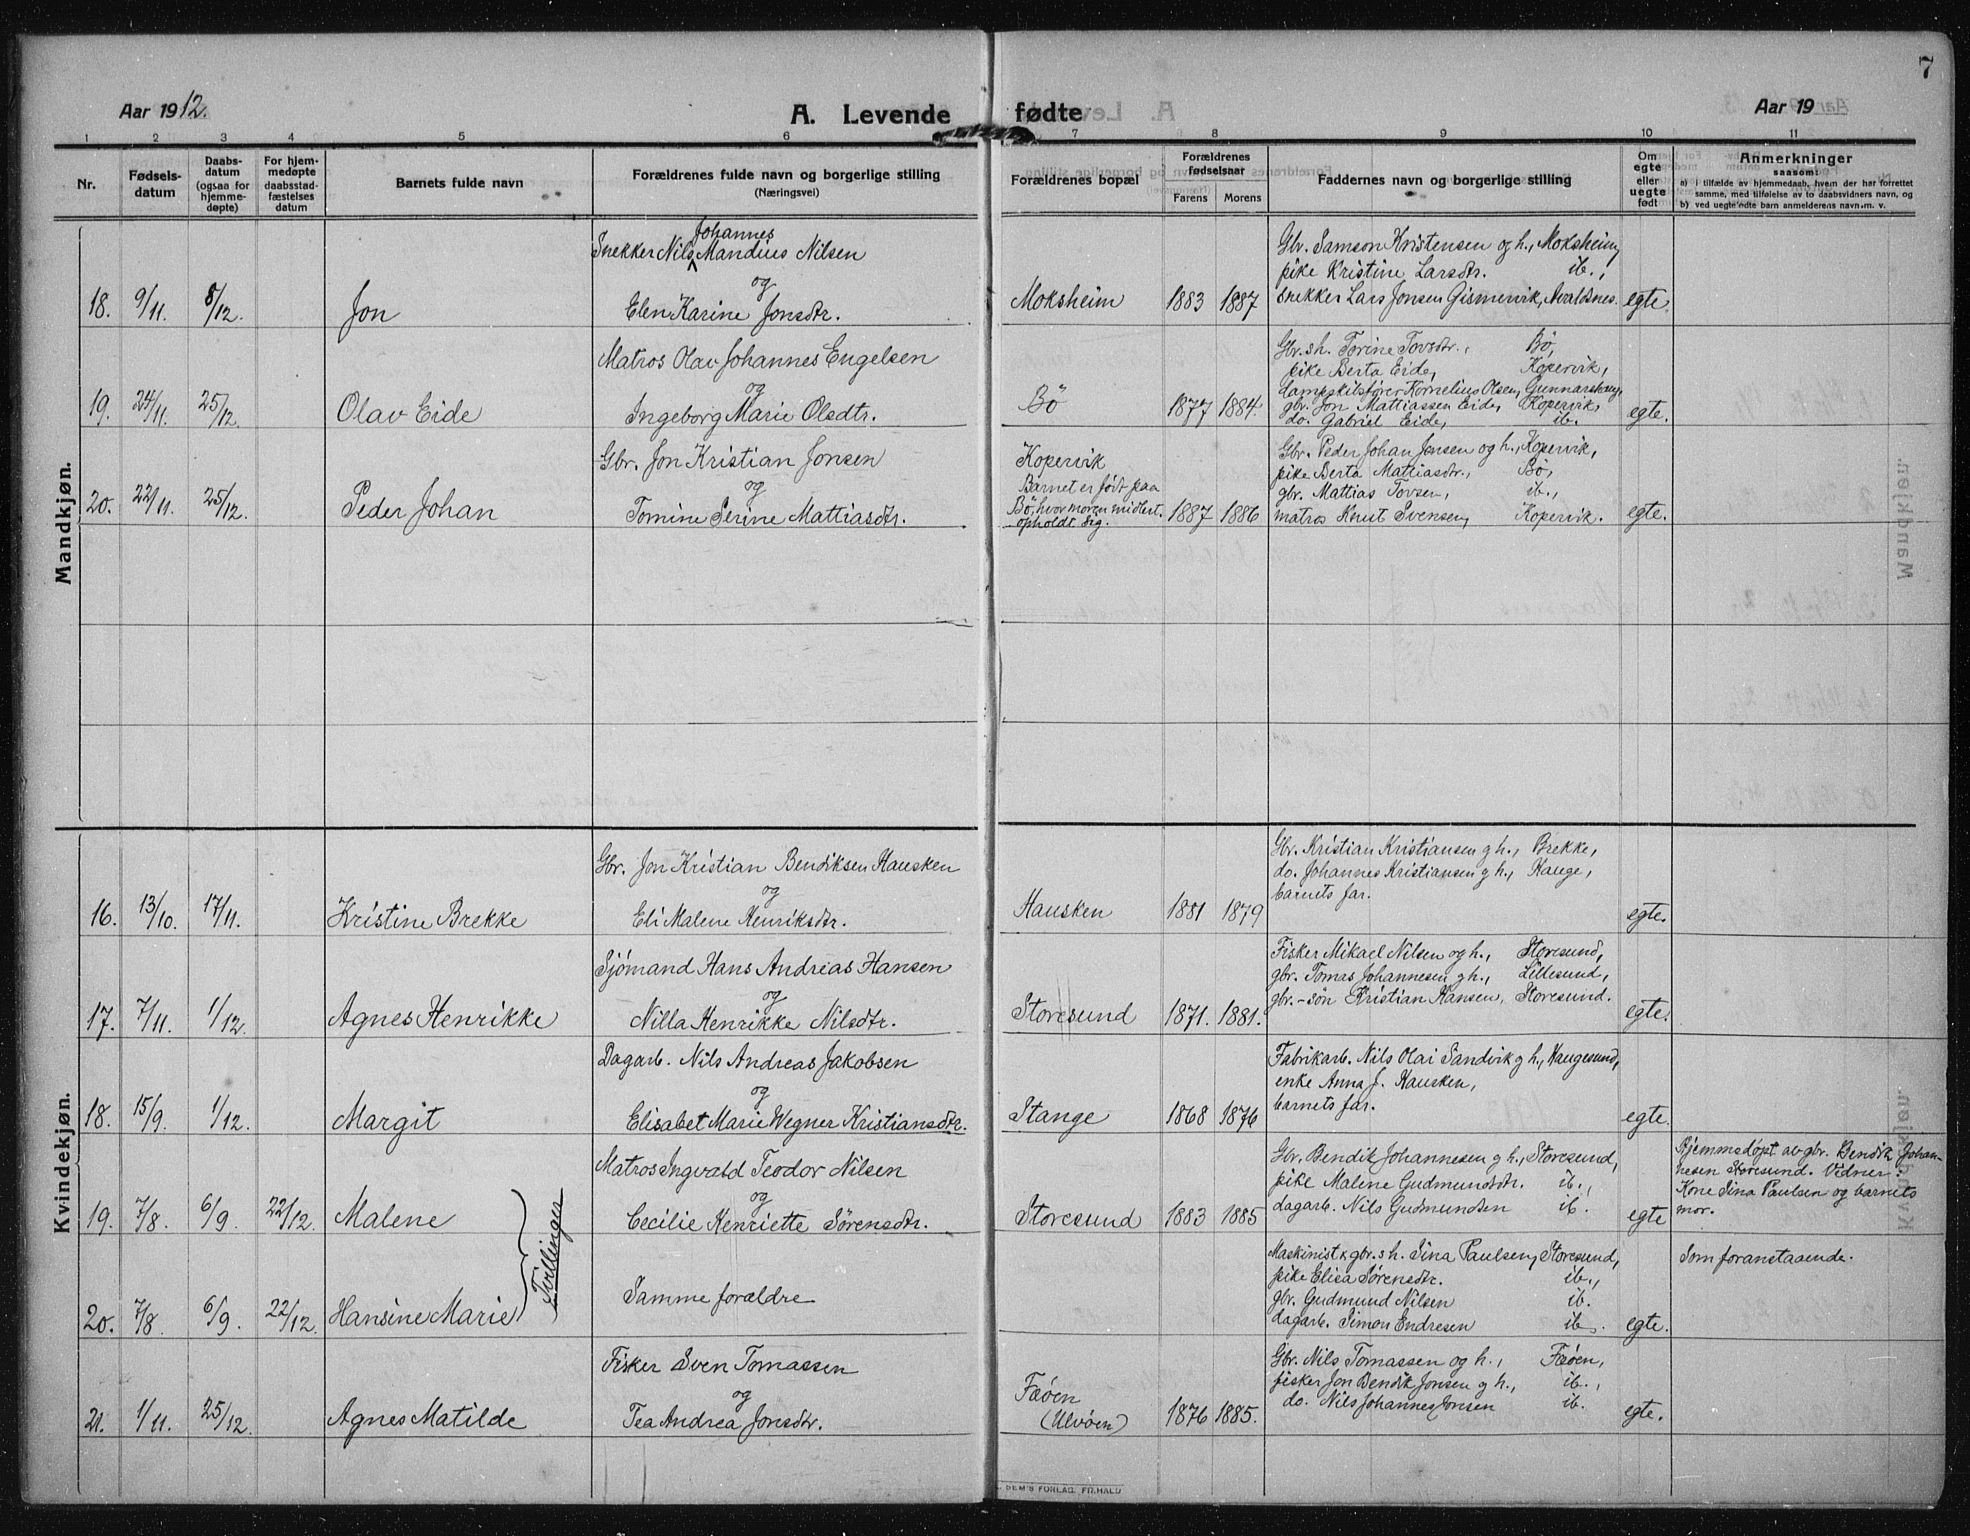 7
Aar 1912.
A. Levende fødte
Aar 19
1 2 3 4 5 6 7 8 9 10 11
Nr.
Fødsels-
datum
Daabs-
datum
(ogsaa for
hjemme-
døpte)
For hjem-
medøpte
daabsstad-
fæstelses
datum
Barnets fulde navn
Forældrenes fulde navn og borgerlige stilling
(Næringsvei)
Forældrenes bopæl
Forældrenes
fødselsaar
Farens Morens
Faddernes navn og borgerlige stilling
Om
egte
eller
uegte
født
Anmerkninger
saasom:
a) i tilfælde av hjemmedaab, hvem der har forrettet
samme, med tilføielse av to daabsvidners navn, og
b) ved uegte fødte barn anmelderens navn m. v.
Mandkjøn.
18. 9/11. 8/12. Jon
Johannes
Snekker Nils Mandius Nilsen
og
Elen Karine Jonsdtr.
Moksheim 1883 1887
Gbr. Samson Kristensen og h., Moksheim,
pike Kristine Larsdtr. ib.,
snekker Lars Jonsen Gismervik, Avaldsnes.
egte.
19. 24/11. 25/12. Olav Eide
Matros Olav Johannes Engelsen
og
Ingeborg Marie Olsdtr.
Bö 1877 1884.
Gbr.s h. Torine Tovsdtr., Bö,
pike Berta Eide, Kopervik,
Dampskibsfører Kornelius Olsen, Gunnarshaug,
gbr. Jon Mattiassen Eide, Kopervik,
do. Gabriel Eide, ib.
egte.
20. 22/11. 25/12. Peder Johan
Gbr. Jon Kristian Jonsen
og
Tomine Serine Mattiasdtr.
Kopervik
Barnet er født paa
Bö, hvor moren midlert.
opholdt sig.
1887 1886
Gbr. Peder Johan Jensen og h., Kopervik,
pike Berta Mattiasdtr., Bö,
gbr. Mattias Tovsen, ib.,
matros Knut Svensen, Kopervik.
egte.
Kvindekjøn.
16. 13/10. 17/11. Kristine Brekke
Gbr. Jon Kristian Bendiksen Hausken
og
Eli Malene Henriksdtr.
Hausken 1881 1879
Gbr. Kristian Kristiansen g h., Brekke,
do. Johannes Kristiansen g h., Hauge,
barnets far.
egte.
17. 7/11. 1/12. Agnes Henrikke
Sjömand Hans Andreas Hansen
og
Nilla Henrikke Nilsdtr.
Storesund 1871. 1881.
Fisker Mikael Nilsen og h., Storesund,
gbr. Tomas Johannesen g h., Lillesund,
gbr.-sön Kristian Hansen, Storesund.
egte.
18. 15/9. 1/12. Margit
Dagarb. Nils Andreas Jakobsen
og
Elisabet Marie Wegner Kristiansdtr.
Stange 1868 1876
Fabrikarb. Nils Olai Sandvik g h., Haugesund,
enke Anna J. Hausken,
barnets far.
egte.
19. 7/8. 6/9. 22/12. Malene
Tvillinger
Matros Ingvald Teodor Nilsen
og
Cecilie Henriette Sörensdtr.
Storesund 1883 1885
Gbr. Bendik Johannesen g h., Storesund,
pike Malene Gudmundsdtr. ib.,
dagarb. Nils Gudmundsen ib.
egte
Hjemmedøpt av gbr. Bendik Johan-
nesen Storesund. Vidner:
Kone Sina Paulsen og barnets
mor.
20. 7/8. 6/9. 22/12. Hansine Marie
Samme forældre
Maskinist & gbr.s h. Sina Paulsen, Storesund,
pike Elisa Sørensdtr. ib.,
gbr. Gudmund Nilsen ib.
dagarb. Simon Endresen ib.
egte.
Som foranstaaende.
21. 1/11. 25/12. Agnes Matilde
Fisker Sven Tomassen
og
Tea Andrea Jonsdtr.
Fæöen
(Ulvöen)
1876 1885.
Gbr. Nils Tomassen og h., Fæöen,
fisker Jon Bendik Jonsen g h., ib.,
do. Nils Johannes Jonsen ib.
egte.
DEM'S FORLAG, FR.HALD